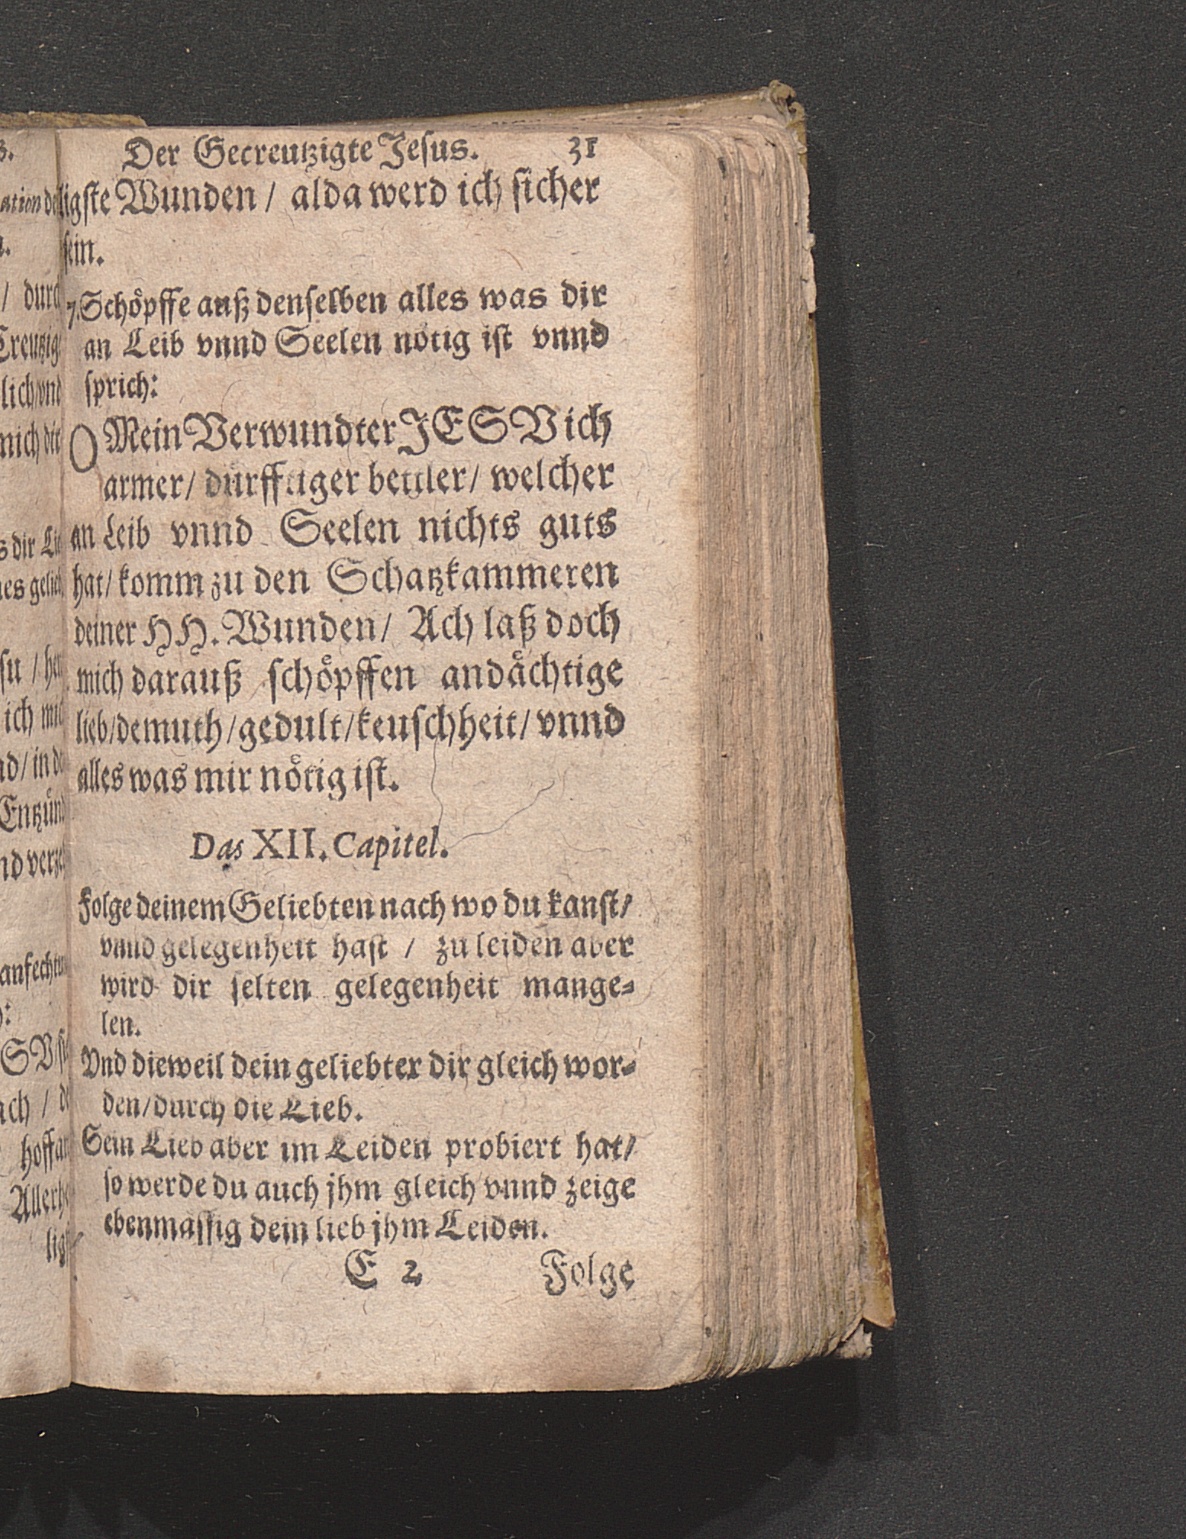 Der Gecreutzigte Jesus. 31
ligste Wunden / alda werd ich sicher
sein.
7. Schöpffe auß denselben alles was dir
an Leib vnnd Seelen nötig ist vnnd
sprich:
O Mein Verwundter JESV ich
armer / dürfftiger bettler / welcher
an Leib vnnd Seelen nichts guts
hat / komm zu den Schatzkammeren
deiner HH. Wunden / Ach laß doch
mich darauß schöpffen andächtige
lieb / demuth / gedult / keuschheit / vnnd
alles was mir nötig ist.
Das XII. Capitel.
Folge deinem Geliebten nach wo du kanst /
vnnd gelegenheit hast / zu leiden aber
wird dir selten gelegenheit mange-
len.
Vnd dieweil dein geliebter dir gleich wor-
den / durch die Lieb.
Sein Lieb aber im Leiden probiert hat /
so werde du auch jhm gleich vnnd zeige
ebenmassig dein lieb jhm Leiden.
E 2 Folge